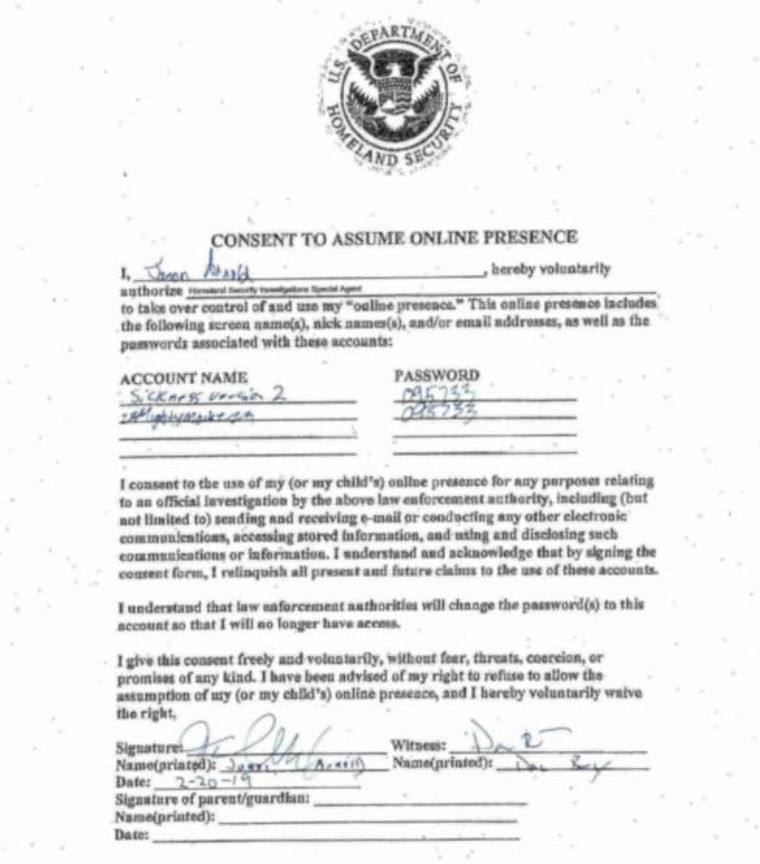 U.S. DEPARTMENT OF
HOMELAND SECURITY
CONSENT TO ASSUME ONLINE PRESENCE
I, Jason Arnold, hereby voluntarily
authorize Homeland Security Investigations Special Agent
to take over control of and use my "online presence." This online presence includes
the following screen name(s), nick names(s), and/or email addresses, as well as the
passwords associated with these accounts:
ACCOUNT NAME PASSWORD
Sickness version 2 095733
095733
I consent to the use of my (or my child's) online presence for any purposes relating
to an official investigation by the above law enforcement authority, including (but
not limited to) sending and receiving e-mail or conducting any other electronic
communications, accessing stored information, and using and disclosing such
communications or information. I understand and acknowledge that by signing the
consent form, I relinquish all present and future claims to the use of these accounts.
I understand that law enforcement authorities will change the password(s) to this
account so that I will no longer have access.
I give this consent freely and voluntarily, without fear, threats, coercion, or
promises of any kind. I have been advised of my right to refuse to allow the
assumption of my (or my child's) online presence, and I hereby voluntarily waive
the right.
Signature: Witness:
Name(printed): Jason Arnold Name(printed):
Date: 2-20-19
Signature of parent/guardian:
Name(printed):
Date: